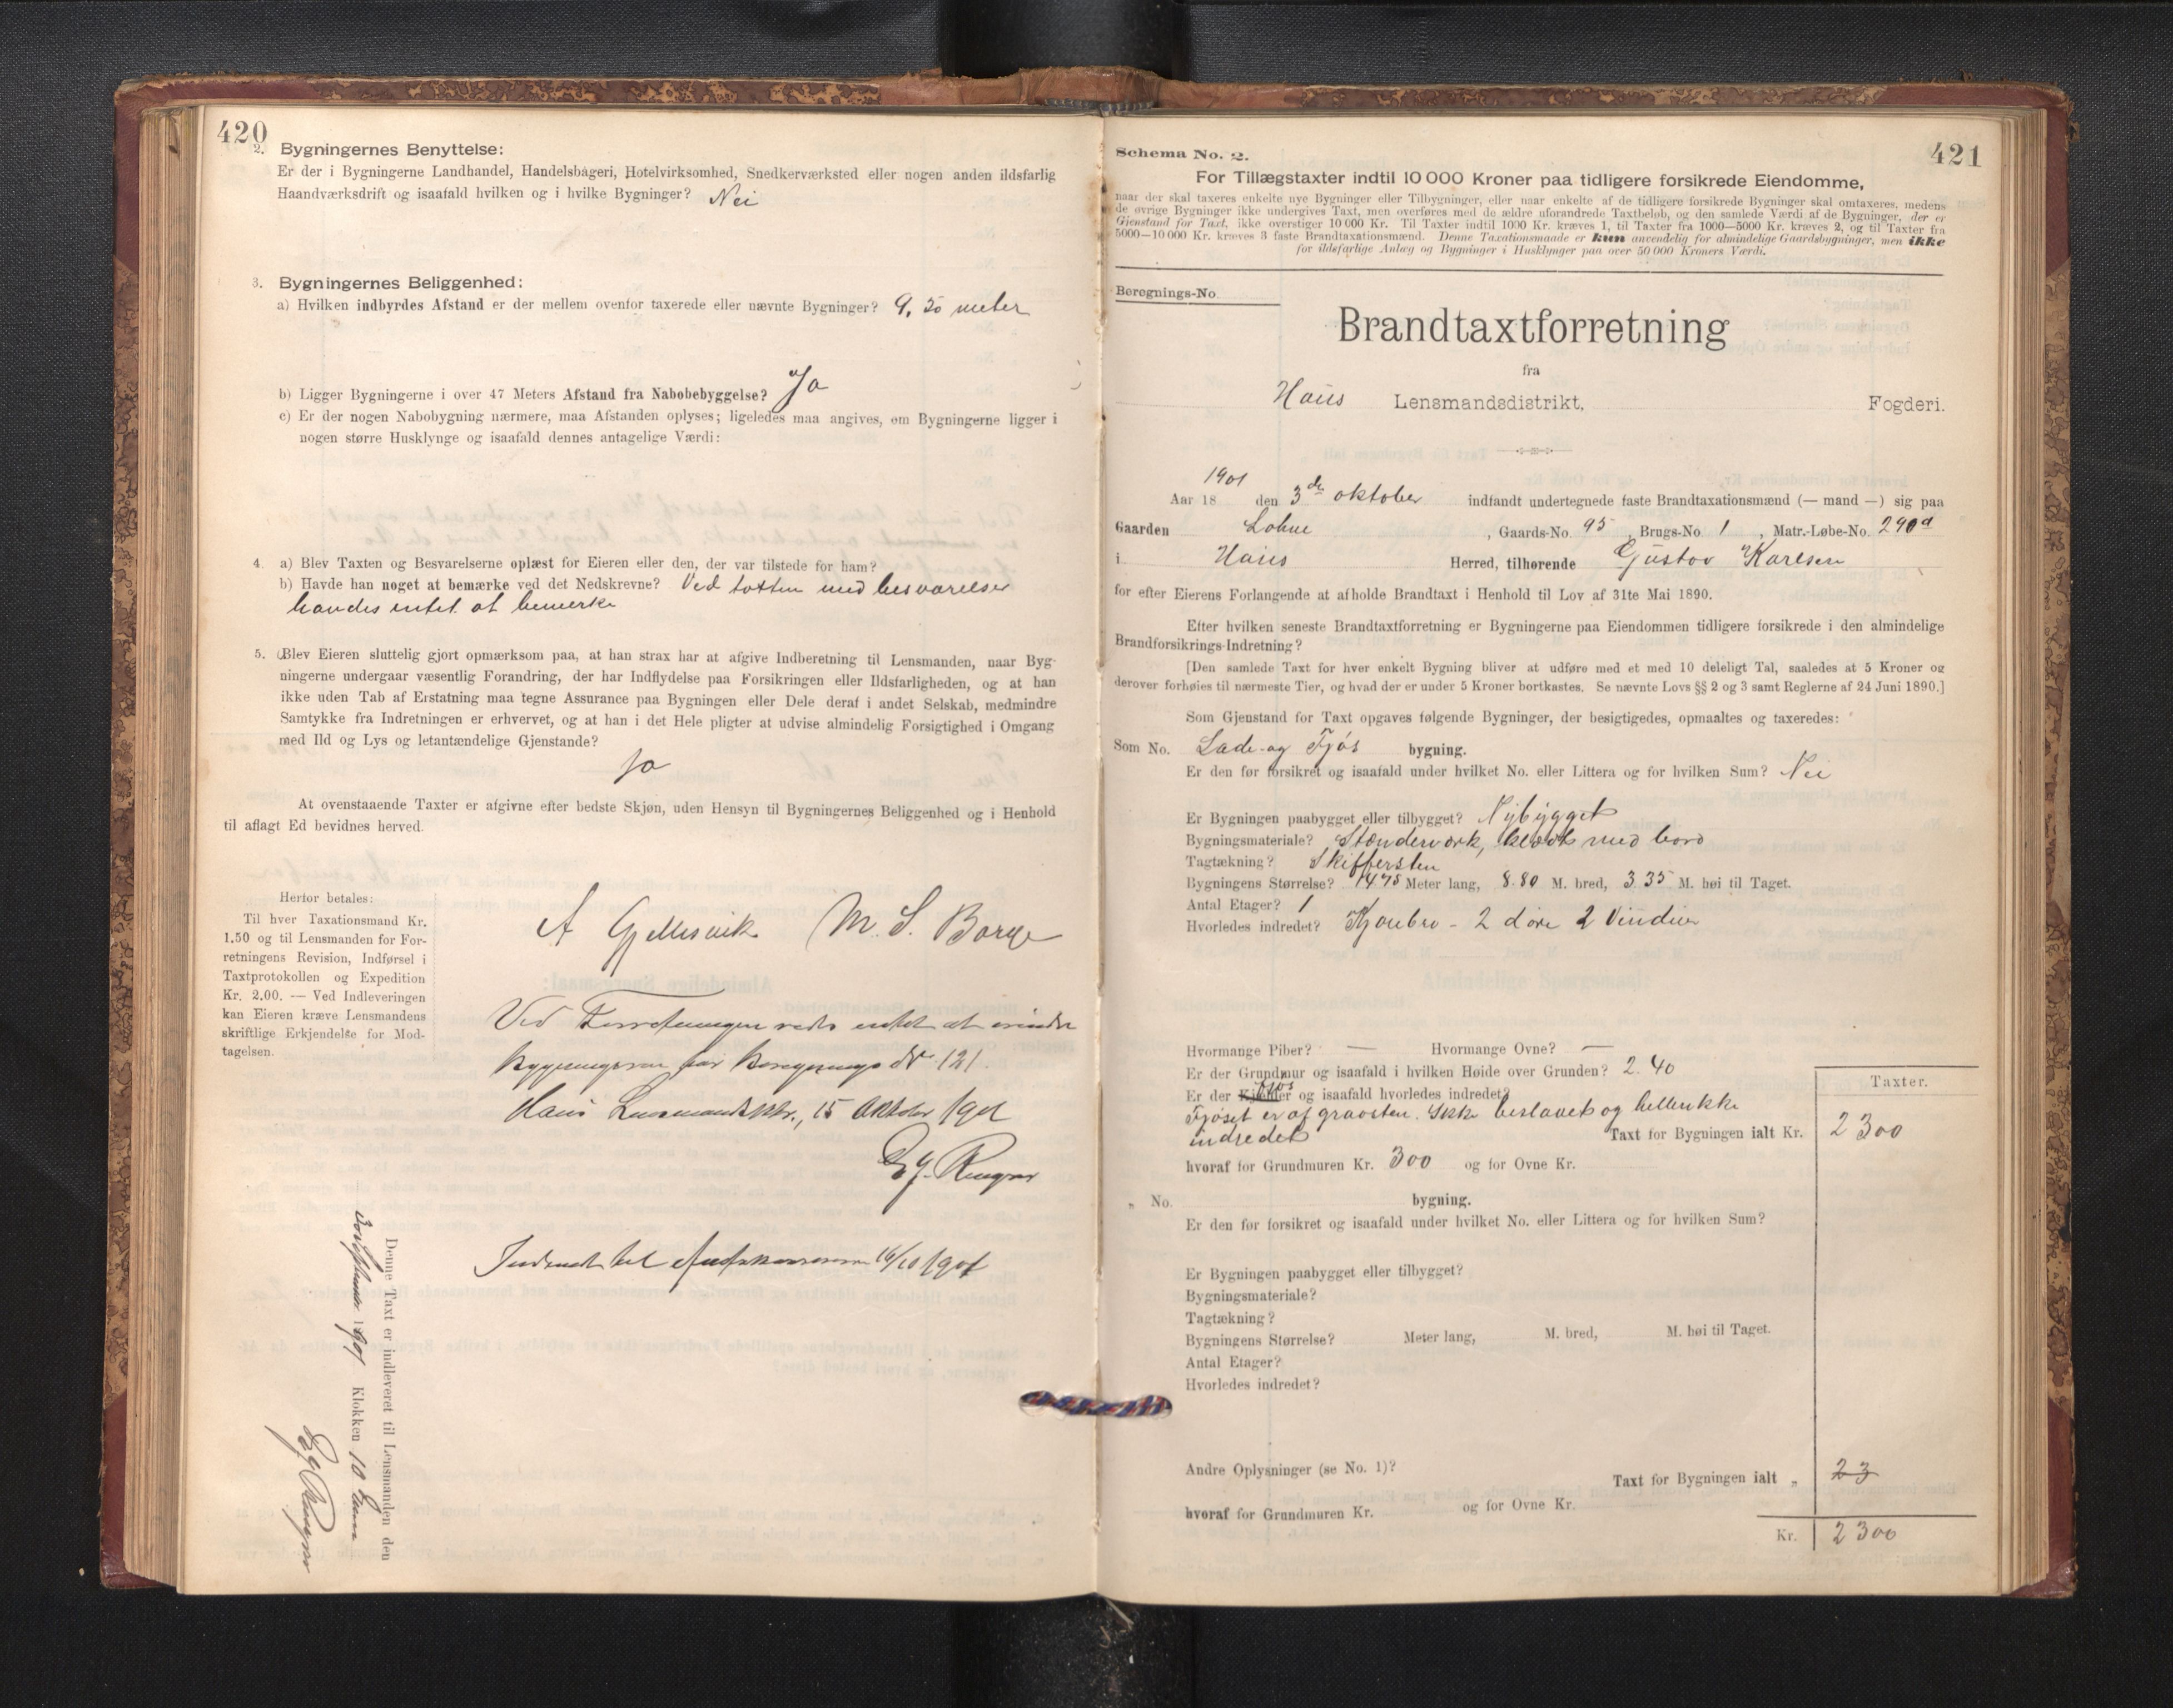 420
2. Bygningernes Benyttelse:
Er der i Bygningerne Landhandel, Handelsbageri, Hotelvirksomhed, Snedkerværksted eller nogen anden ildsfarlig
Haandværksdrift og isaafald hvilken og i hvilke Bygninger? Nei
3. Bygningernes Beliggenhed:
a) Hvilken indbyrdes Afstand er der mellem ovenfor taxerede eller nævnte Bygninger? 9,50 meter
b) Ligger Bygningerne i over 47 Meters Afstand fra Nabobebyggelse? Ja
c) Er der nogen Nabobygning nærmere, maa Afstanden oplyses; ligeledes maa angives, om Bygningerne ligger i
nogen større Husklynge og isaafald dennes antagelige Værdi:
4. a) Blev Taxten og Besvarelserne oplæst for Eieren eller den, der var tilstede for ham?
b) Havde han noget at bemærke ved det Nedskrevne? Ved taxten med besvarelser
havdes intet at bemerke
5. Blev Eieren sluttelig gjort opmærksom paa, at han strax har at afgive Indberetning til Lensmanden, naar Byg-
ningerne undergaar væsentlig Forandring, der har Indflydelse paa Forsikringen eller Ildsfarligheden, og at han
ikke uden Tab af Erstatning maa tegne Assurance paa Bygningen eller Dele deraf i andet Selskab, medmindre
Samtykke fra Indretningen er erhvervet, og at han i det Hele pligter at udvise almindelig Forsigtighed i Omgang
med Ild og Lys og letantændelige Gjenstande?
Ja
At ovenstaaende Taxter er afgivne efter bedste Skjøn, uden Hensyn til Bygningernes Beliggenhed og i Henhold
til aflagt Ed bevidnes herved.
Herfor betales:
Til hver Taxationsmand Kr.
1.50 og til Lensmanden for For-
retningens Revision, Indførsel i
Taxtprotokollen og Expedition
Kr. 2.00. — Ved Indleveringen
kan Eieren kræve Lensmandens
skriftlige Erkjendelse for Mod-
tagelsen.
A Gjellesvik M. S. Borge
Ved Forretningen vides intet at erindre
Bygningerne har Beregnings No 121.
Haus Lensmandsktr., 15 Oktober 1901
Indsendt til 16/10 1901
Denne Taxt er indleveret til Lensmanden den
1901 Klokken 10
421
Schema No. 2.
For Tillægstaxter indtil 10 000 Kroner paa tidligere forsikrede Eiendomme,
naar der skal taxeres enkelte nye Bygninger eller Tilbygninger, eller naar enkelte af de tidligere forsikrede Bygninger skal omtaxeres, medens
de øvrige Bygninger ikke undergives Taxt, men overføres med de ældre uforandrede Taxtbeløb, og den samlede Værdi af de Bygninger, der er
Gjenstand for Taxt, ikke overstiger 10 000 Kr. Til Taxter indtil 1000 Kr. kræves 1, til Taxter fra 1000—5000 Kr. kræves 2, og til Taxter fra
5000—10 000 Kr. kræves 3 faste Brandtaxationsmænd. Denne Taxationsmaade er kun anvendelig for almindelige Gaardsbygninger, men ikke
for ildsfarlige Anlæg og Bygninger i Husklynger paa over 50 000 Kroners Værdi.
Beregnings-No.
Brandtaxtforretning
fra
Haus Lensmandsdistrikt, Fogderi.
Aar 18 1901 den 3de oktober indfandt undertegnede faste Brandtaxationsmænd (— mand —) sig paa
Gaarden Lohne, Gaards-No. 95, Brugs-No. 1, Matr.-Løbe-No. 290d
i Haus Herred, tilhørende Gustav Karlsen
for efter Eierens Forlangende at afholde Brandtaxt i Henhold til Lov af 31te Mai 1890.
Efter hvilken seneste Brandtaxtforretning er Bygningerne paa Eiendommen tidligere forsikrede i den almindelige
Brandforsikrings-Indretning?
[Den samlede Taxt for hver enkelt Bygning bliver at udføre med et med 10 deleligt Tal, saaledes at 5 Kroner og
derover forhøies til nærmeste Tier, og hvad der er under 5 Kroner bortkastes. Se nævnte Lovs §§ 2 og 3 samt Reglerne af 24 Juni 1890.]
Som Gjenstand for Taxt opgaves følgende Bygninger, der besigtigedes, opmaaltes og taxeredes:
Som No. Lade- og Fjøs bygning.
Er den før forsikret og isaafald under hvilket No. eller Littera og for hvilken Sum? Nei
Er Bygningen paabygget eller tilbygget? Nybygget
Bygningsmateriale? Stenderverk, kledt med bord
Tagtækning? Skiffersten
Bygningens Størrelse? 14.75 Meter lang, 8.80 M. bred, 3.35 M. høi til Taget.
Antal Etager? 1
Hvorledes indredet? Kjørebro - 2 døre 2 Vinduer
Hvormange Piber? — Hvormange Ovne? —
Er der Grundmur og isaafald i hvilken Høide over Grunden? 2.40
Er der Kjelder fjøs og isaafald hvorledes indredet?
Fjøset er af graasten. Ikke beslaaet og heller ikke
indredet
Taxter.
Taxt for Bygningen ialt Kr. 2300
hvoraf for Grundmuren Kr. 300 og for Ovne Kr.
„ No. bygning.
Er den før forsikret og isaafald under hvilket No. eller Littera og for hvilken Sum?
Er Bygningen paabygget eller tilbygget?
Bygningsmateriale?
Tagtækning?
Bygningens Størrelse? Meter lang, M. bred, M. høi til Taget.
Antal Etager?
Hvorledes indredet?
Andre Oplysninger (se No. 1)?
Taxt for Bygningen ialt „ 23
hvoraf for Grundmuren Kr. og for Ovne Kr.
Kr. 2300